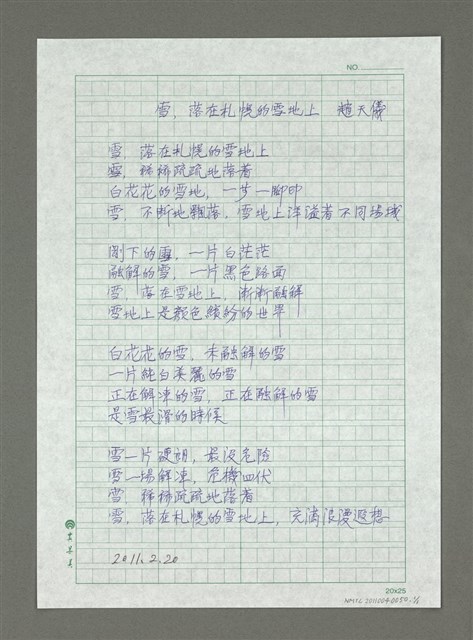 NO.
雪，落在札幌的雪地上 趙天儀
雪，落在札幌的雪地上
雪，稀稀疏疏地落着
白花花的雪地，一步一腳印
雪，不斷地飄落，雪地上洋溢着不同場域
剛下的雪，一片白茫茫
融解的雪，一片黑色路面
雪，落在雪地上，漸漸融解
雪地上是顏色繽紛的世界
白花花的雪，未融解的雪
一片純白美麗的雪
正在解凍的雪，正在融解的雪
是雪最滑的時候
雪一片硬朗，最沒危險
雪一場解凍，危機四伏
雪，稀稀疏疏地落着
雪，落在札幌的雪地上，充滿浪漫遐想
2011.2.20
20x25